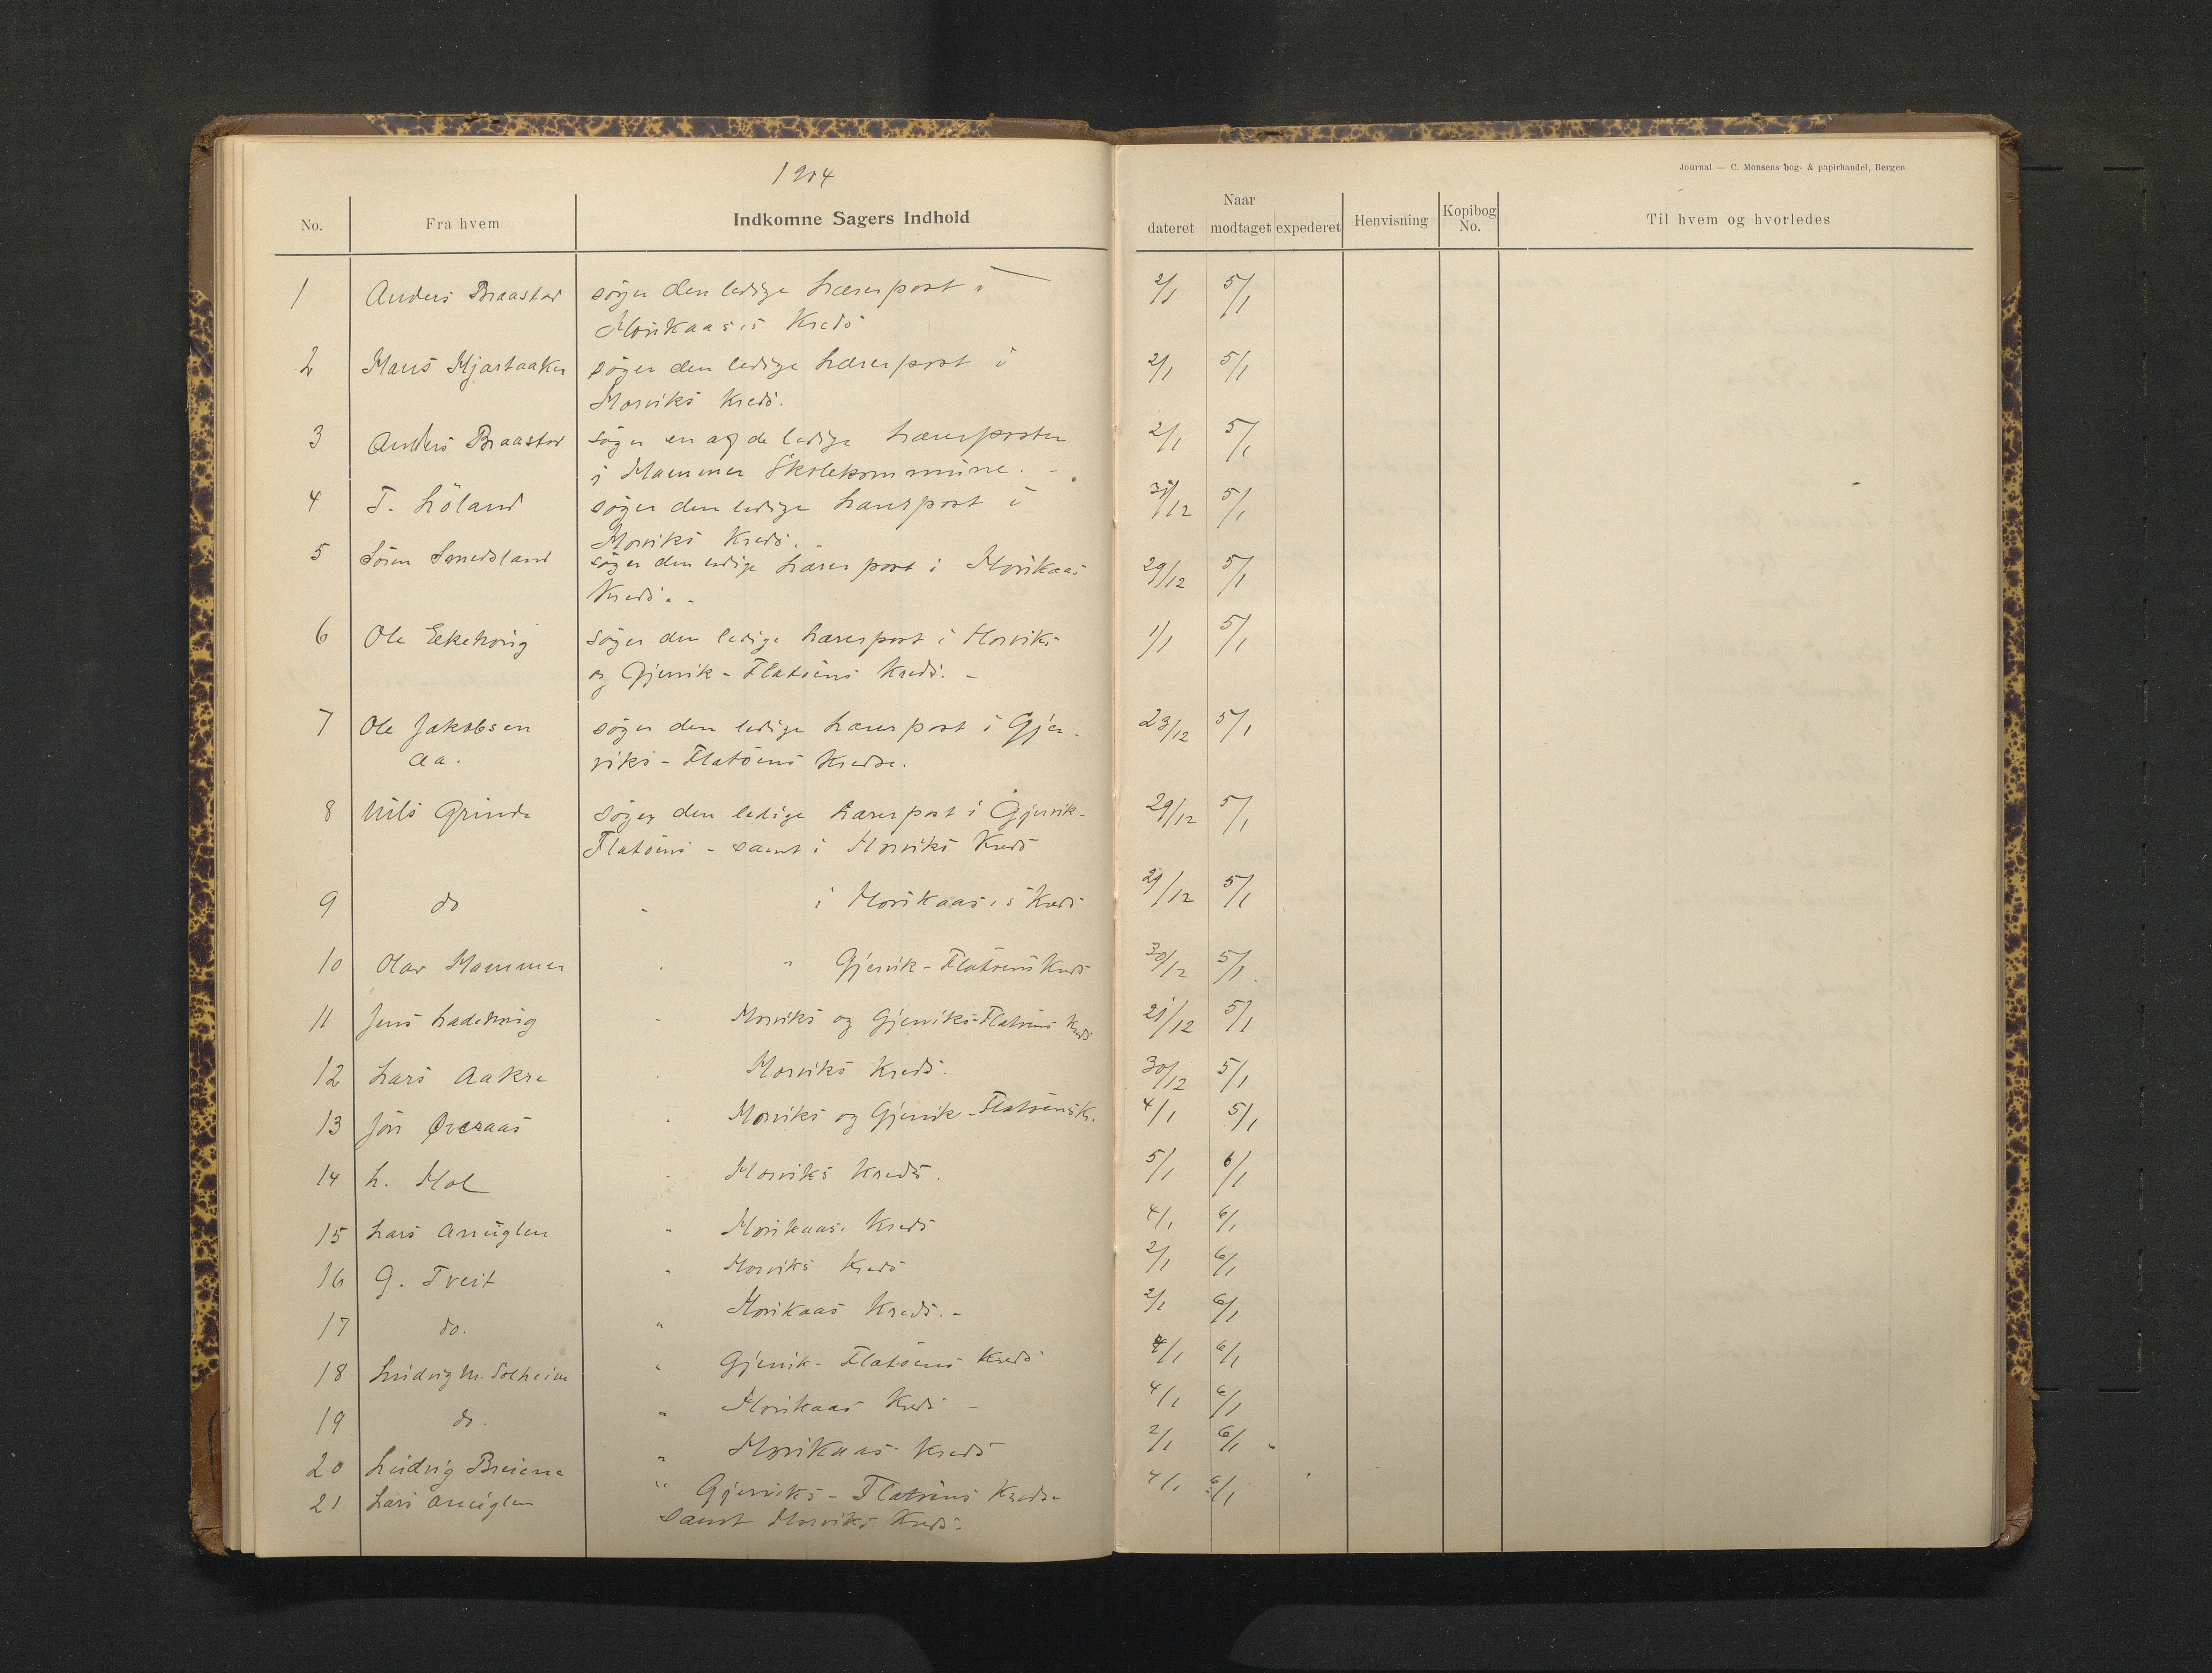 1904
Journal — C. Monsens bog- & papirhandel, Bergen
No. Fra hvem Indkomne Sagers Indhold Naar dateret modtaget expederet Henvisning Kopibog No. Til hvem og hvorledes
1 Anders Braastad søger den ledige Lærerpost i 2/1 5/1
Kreds
2 søger den ledige Lærerpost i 2/1 5/1
Morviks Kreds.
3 Anders Braastad søger en af de ledige Lærerposter 2/1 5/1
i Hammer Skolekommune.
4 T. Löland søger den ledige Lærerpost i 31/12 5/1
Morviks Kreds.
5 Sören Smedsland søger den ledige Lærerpost i Morikaas 29/12 5/1
Kreds. -
6 Ole Eikehovig søger den ledige Lærerpost i Morviks 1/1 5/1
og Gjervik - Flatöens Kreds. -
7 Ole Jakobsen søger den ledige Lærerpost i Gjer- 23/12 5/1
Aa. viks - Flatöens Kredse.
8 Nils Grinde søger den ledige Lærerpost i Gjervik- 29/12 5/1
Flatöens - samt i Morviks Kreds
9 do - i Kreds 29/12 5/1
10 Olav Hammer " Gjervik - Flatöens Kreds 30/12 5/1
11 Jens Ladehovig - Morviks og Gjerviks-Flatöens Kreds 21/12 5/1
12 Lars Aakre Morviks Kreds. 30/12 5/1
13 Jon Øveraas Morviks og Gjervik - Flatöens Kr. 4/1 5/1
14 L. Mol Morviks Kreds. 5/1 6/1
15 Lars " Morikaas Kreds 4/1 6/1
16 G. Tveit " Morviks Kreds 2/1 6/1
17 do. " Morikaas Kreds. - 2/1 6/1
18 Ludvig M. Solheim " Gjervik - Flatöens Kreds 4/1 6/1
19 do. " Morikaas Kreds - 4/1 6/1
20 Ludvig " Morikaas Kreds 2/1 6/1
21 Lars " Gjerviks - Flatöens Kredse 4/1 6/1
samt Morviks Kreds.